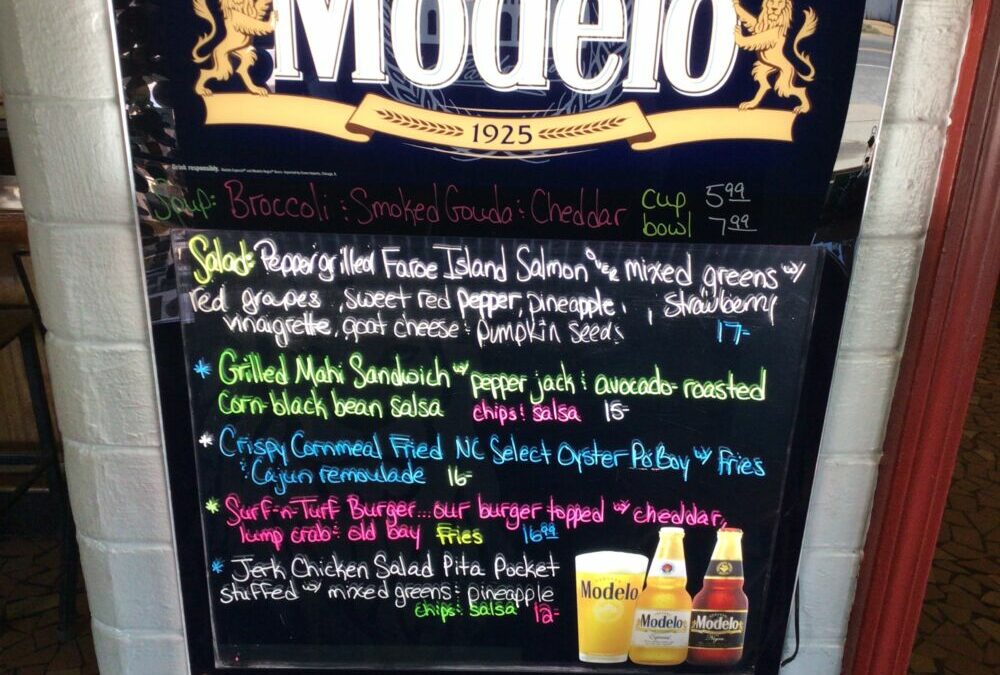 Modelo
1925
Drink responsibly.
Soup: Broccoli & Smoked Gouda & Cheddar cup 5.99
bowl 7.99
Salad: Pepper grilled Faroe Island Salmon over mixed greens w/
red grapes, sweet red pepper, pineapple, strawberry
vinaigrette, goat cheese & pumpkin seeds. 17-
* Grilled Mahi Sandwich w/ pepper jack & avocado-roasted
corn-black bean salsa chips & salsa 15-
* Crispy Cornmeal Fried NC Select Oyster Po'Boy w/ Fries
& Cajun remoulade 16-
* Surf-n-Turf Burger...our burger topped w/ cheddar,
lump crab & old bay Fries 16.99
* Jerk Chicken Salad Pita Pocket
stuffed w/ mixed greens & pineapple
chips & salsa 12-
Modelo
Modelo
Especial
Modelo
Negra